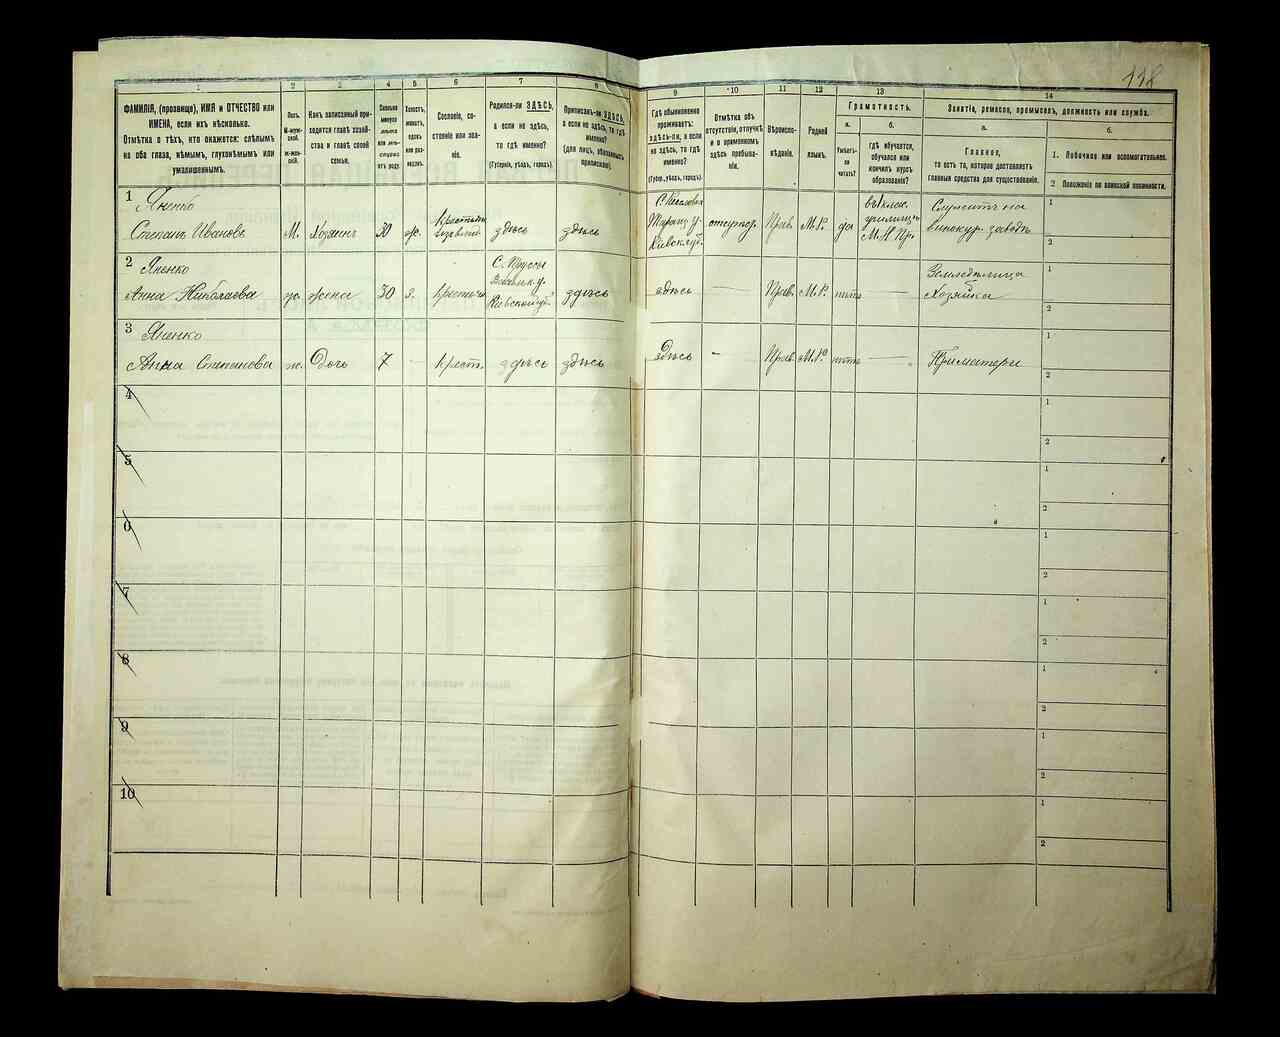 118
1
2
3
4
5
6
7
8
9
10
11
12
13
14
ФАМИЛІЯ, (прозвище), ИМЯ и ОТЧЕСТВО или
ИМЕНА, если ихъ нѣсколько.
Отмѣтка о тѣхъ, кто окажется: слѣпымъ
на оба глаза, нѣмымъ, глухонѣмымъ или
умалишеннымъ.
Полъ.
М-муж-
ской.
Ж-жен-
скій.
Какъ записанный при-
ходится главѣ хозяй-
ства и главѣ своей
семьи.
Сколько
минуло
лѣтъ
или мѣ-
сяцевъ
отъ роду.
Холостъ,
женатъ,
вдовъ
или раз-
веденъ.
Сословіе, со-
стояніе или зва-
ніе.
Родился-ли ЗДѢСЬ,
а если не здѣсь,
то гдѣ именно?
(Губернія, уѣздъ, городъ).
Приписанъ-ли ЗДѢСЬ,
а если не здѣсь, то гдѣ
именно?
(для лицъ, обязанныхъ
припискою).
Гдѣ обыкновенно
проживаетъ:
здѣсь-ли, а если
не здѣсь, то гдѣ
именно?
(Губер., уѣздъ, городъ).
Отмѣтка объ
отсутствіи, отлучкѣ
и о временномъ
здѣсь пребыва-
ніи.
Вѣроиспо-
вѣданіе.
Родной
языкъ.
Грамотность.
а.
Умѣетъ-
ли
читать?
б.
гдѣ обучается,
обучался или
кончилъ курсъ
образованія?
Занятіе, ремесло, промыселъ, должность или служба.
а.
Главное,
то есть то, которое доставляетъ
главныя средства для существованія.
б.
1. Побочное или вспомогательное.
2 Положеніе по воинской повинности.
1
Яненко
Степанъ Ивановъ
М.
Хозяинъ
30
ж.
здѣсь
здѣсь
Таращ. у.
Кіевск. губ.
Прав.
М.Р.
да
училищѣ
М. Н. Пр.
Служитъ на
винокур. заводѣ
1
2
2
Яненко
Анна Николаева
ж.
жена
30
з.
Крестьян.
Кіевской губ.
здѣсь
здѣсь
—
Прав.
М.Р.
нѣтъ
—
Земледѣлица
Хозяйка
1
2
3
Яненко
Анна Степанова
ж.
Дочь
7
—
Крест.
здѣсь
здѣсь
здѣсь
—
Прав.
М.Р.
нѣтъ
—
При матери
1
2
4
1
2
5
1
2
6
1
2
7
1
2
8
1
2
9
1
2
10
1
2